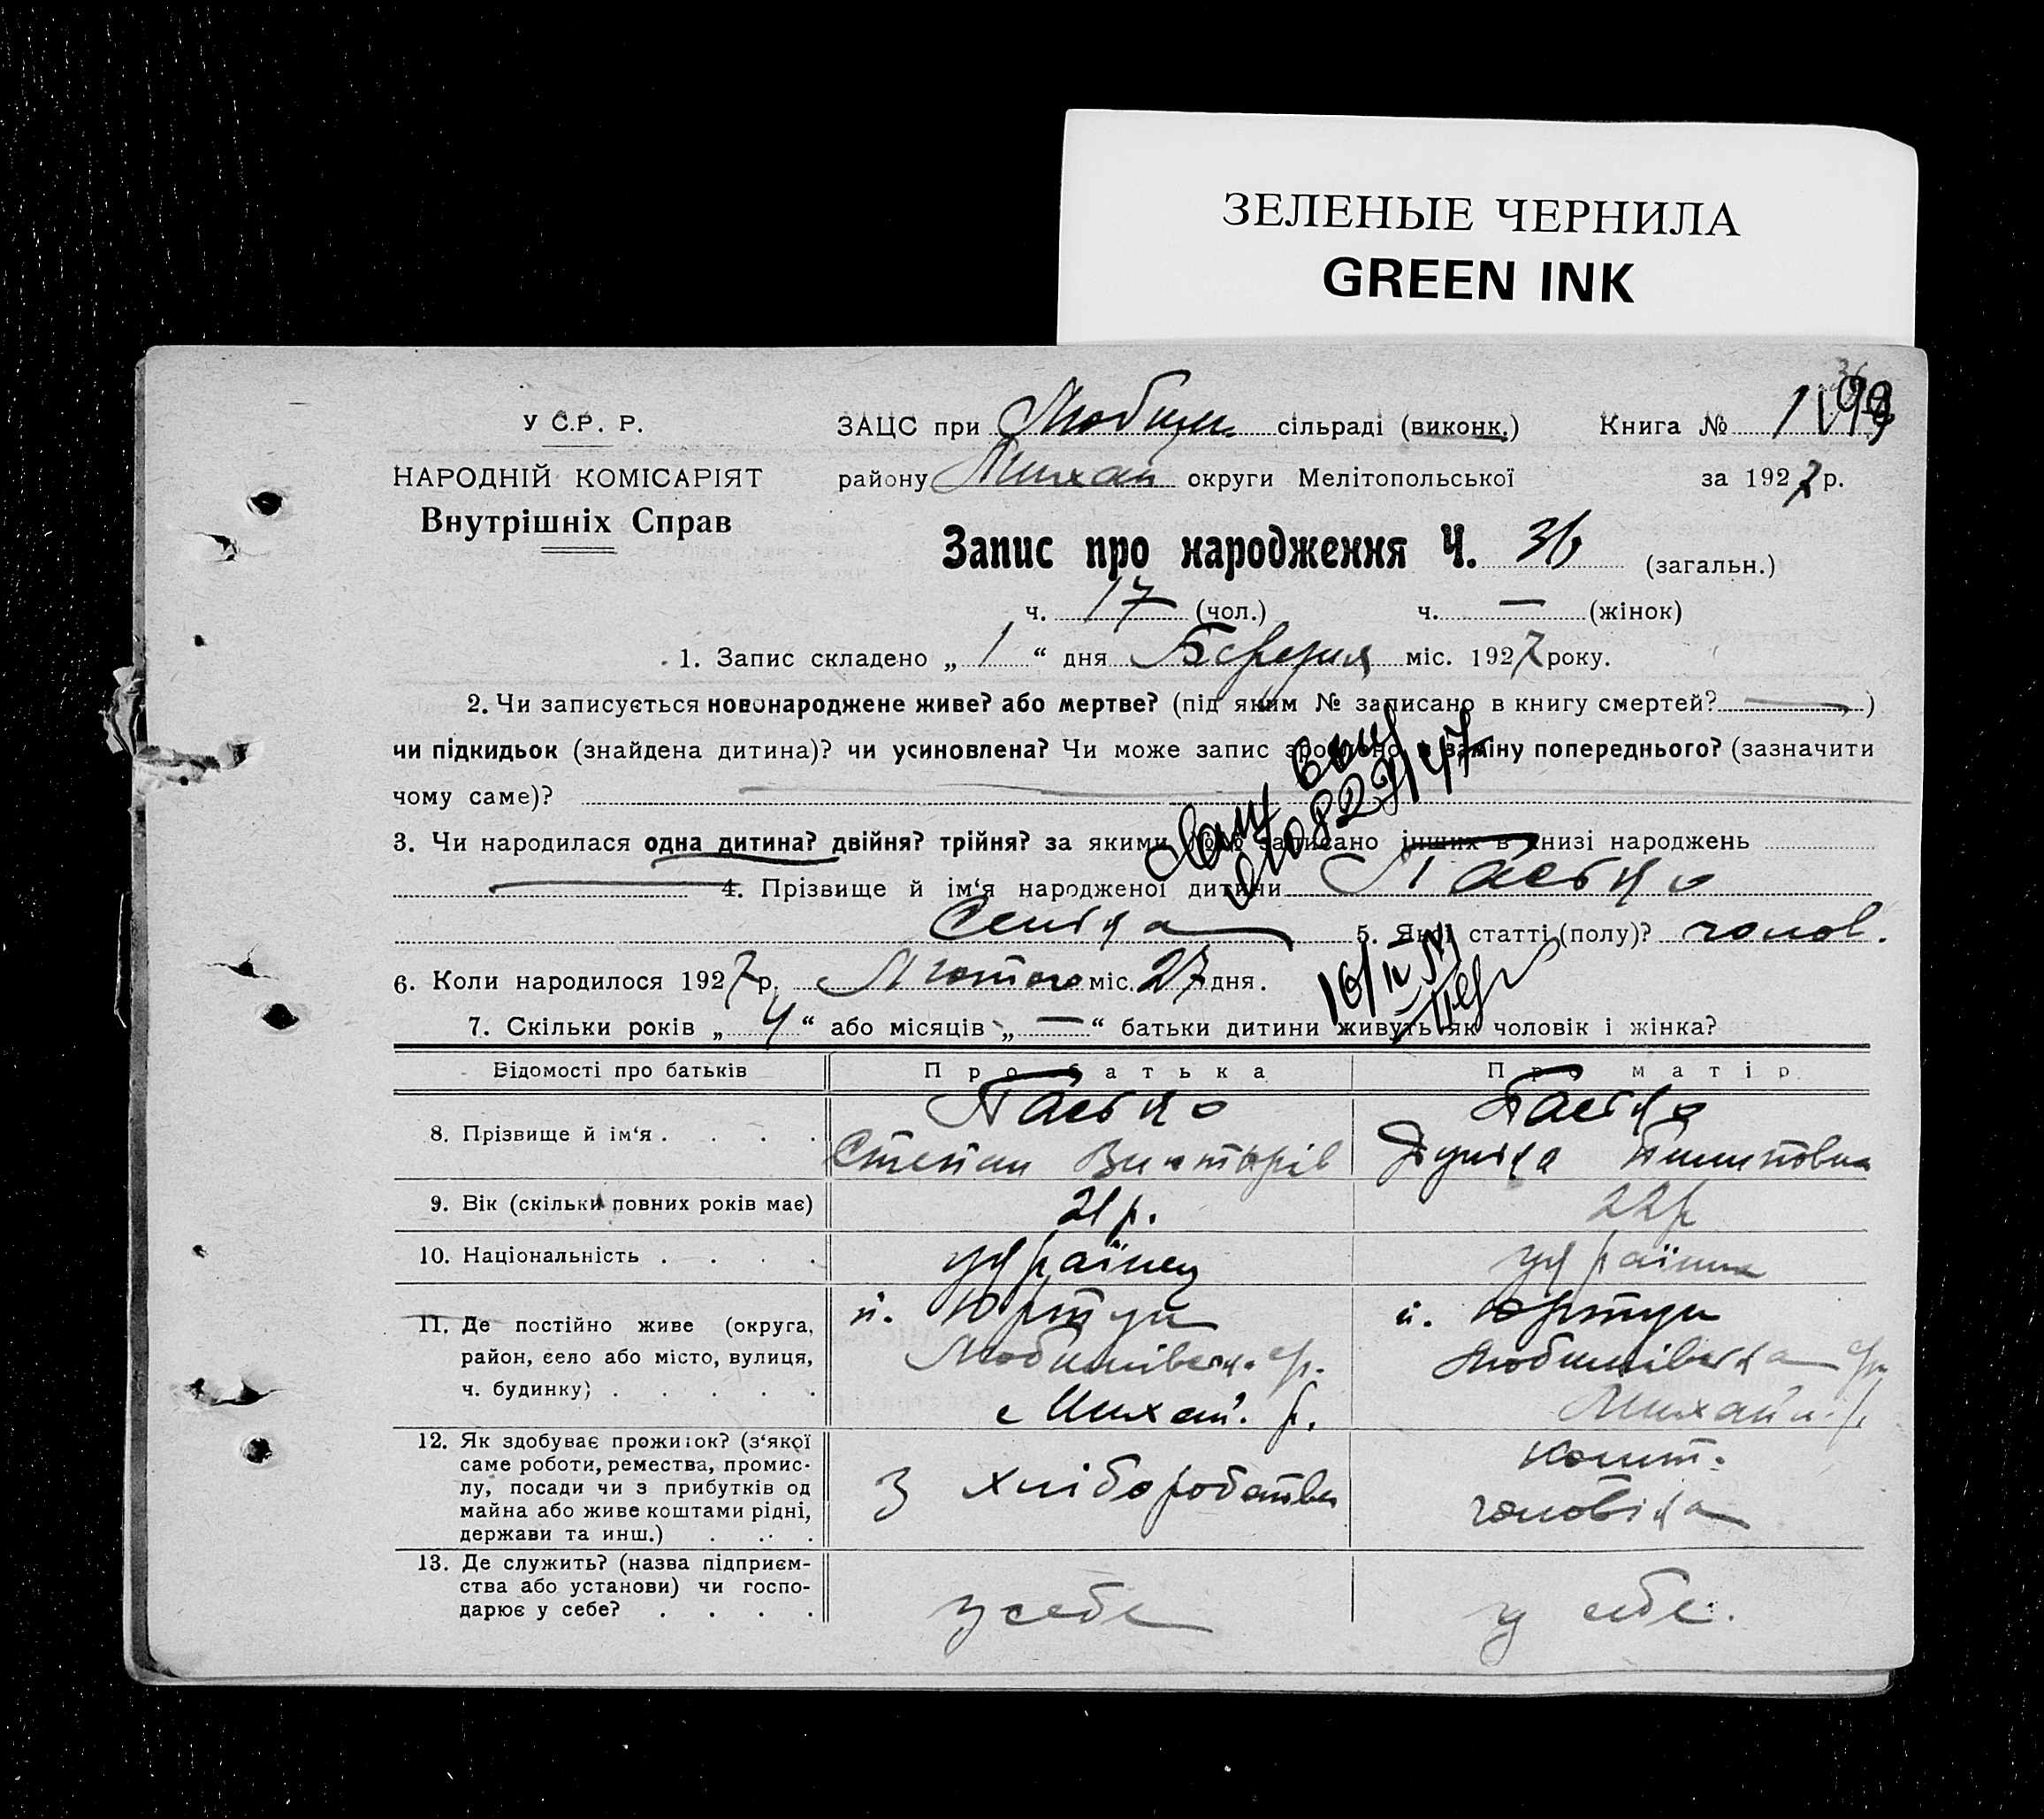 ЗЕЛЕНЫЕ ЧЕРНИЛА
GREEN INK
У С.Р. Р.
НАРОДНІЙ КОМІСАРІЯТ
Внутрішніх Справ
ЗАЦС при Любим. сільраді (виконк.) Книга №
району Михай округи Мелітопольської за 1927 р.
Запис про народження Ч. 36 (загальн.)
ч. 17 (чол.) ч. — (жінок)
1. Запис складено „ 1 “ дня Березня міс. 1927 року.
2. Чи записується новонароджене живе? або мертве? (під яким № записано в книгу смертей? — )
чи підкидьок (знайдена дитина)? чи усиновлена? Чи може запис зроблено в заміну попереднього? (зазначити
чому саме)?
3. Чи народилася одна дитина? двійня? трійня? за якими №№ записано інших в книзі народжень
— 4. Прізвище й ім‘я народженої дитини Пасько
5. Якої статті (полу)? чолов.
6. Коли народилося 1927 р. Лютого міс. 27 дня.
7. Скільки років „ 4 “ або місяців „ — “ батьки дитини живуть як чоловік і жінка?
Відомості про батьків Про батька Про матір
8. Прізвище й ім‘я . . . . Пасько Пасько
Степан Вікторів Пилиповна
9. Вік (скільки повних років має) 21 р. 22 р
10. Національність . . . . українец українка
11. Де постійно живе (округа, район, село або місто, вулиця, ч. будинку) . . . . .
Любимівськ. с/р. Любимівська с/р
Михай. р. Михайл. р.
12. Як здобуває прожиток? (з‘якої саме роботи, ремества, промислу, посади чи з прибутків од майна або живе коштами рідні, держави та инш.) . . . .
З хліборобства кошт.
чоловіка
13. Де служить? (назва підприємства або установи) чи господарює у себе? . . . .
у себе у себе.